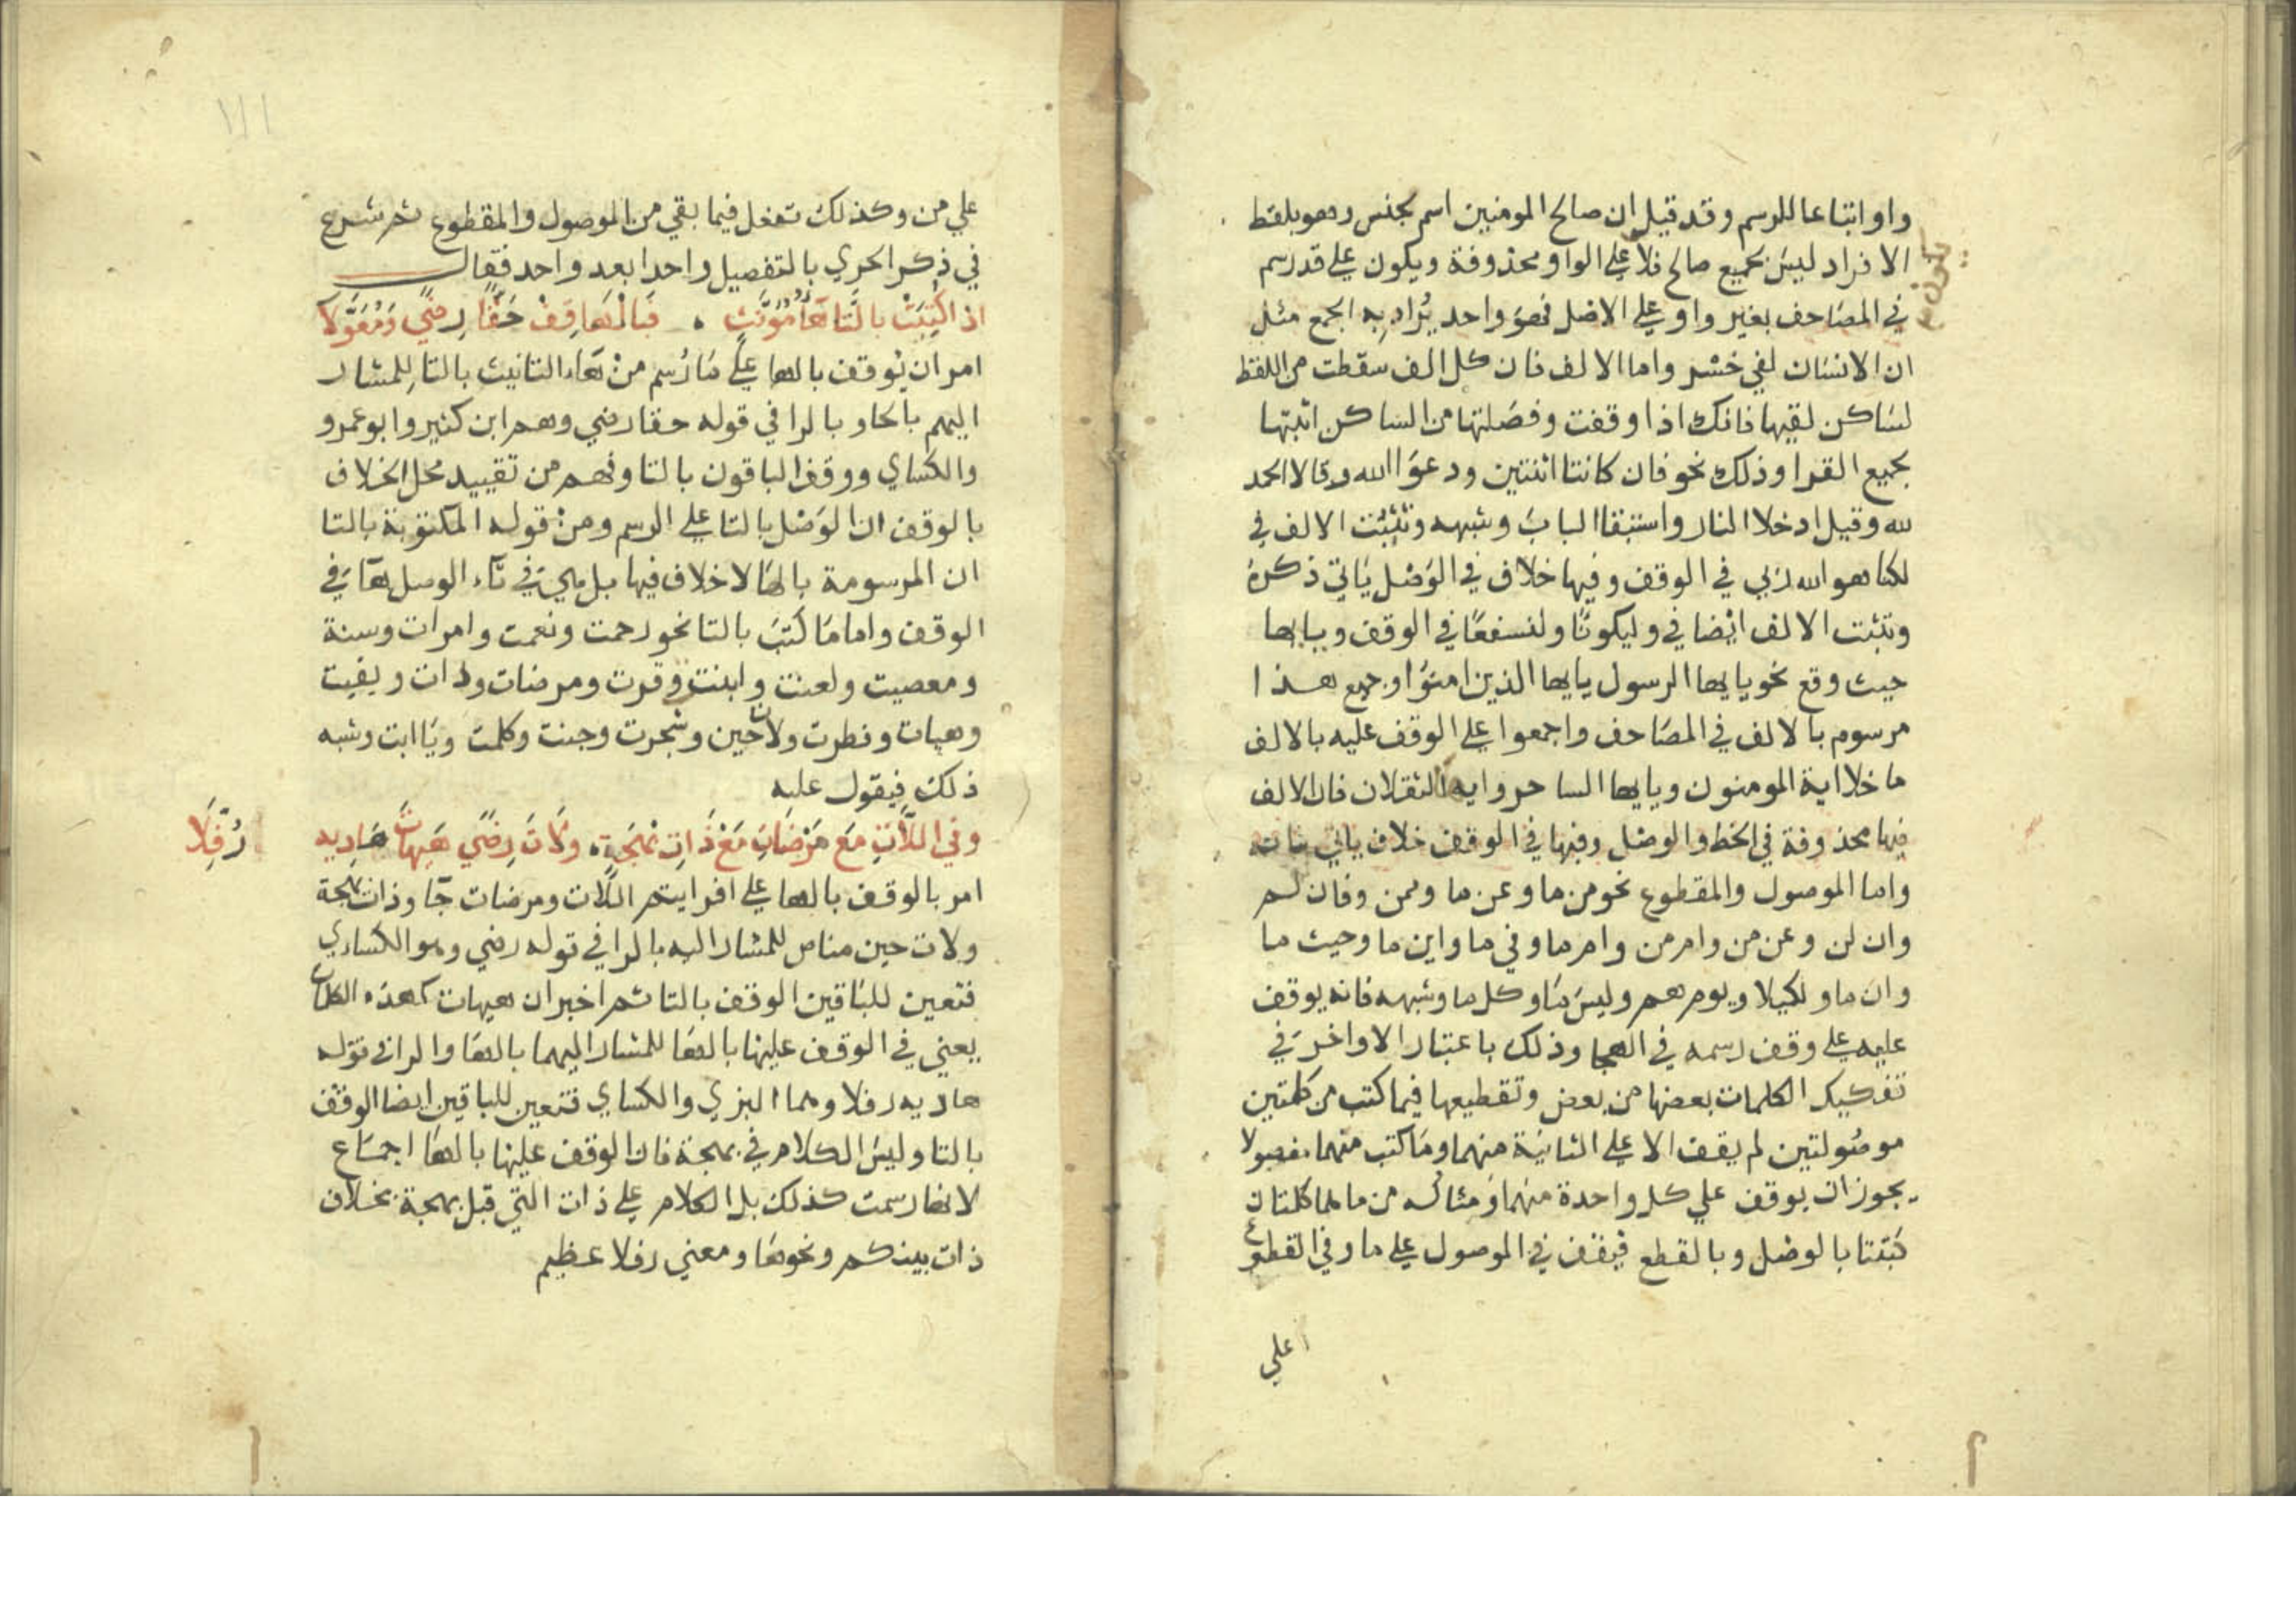 واو اتباعا للرسم وقد قيل ان صالح المومنين اسم جنس وهو بلفظ
الافراد ليس بجميع صالح فلا على الواو محذوفة ويكون على قد رسم
يكون
في المصاحف بغير واو على الاصل فهو واحد يُراد به الجمع مثل
ان الانسان لفي خسر واما الالف فان كل الف سقطت من اللفظ
لساكن لقيها فانك اذا وقفت وفصلتها من الساكن اثبتها
بجميع القرا وذلك نحو فان كانتا اثنتين ودعوا الله وقالا الحمد
لله وقيل ادخلا النار واستبقا الباب وشبهه وتثبت الالف في
لكنا هو الله ربي في الوقف وفيها خلاف في الوصل ياتي ذكره
وتثبت الالف ايضا في وليكونا ولنسفعا في الوقف وبيايها
حيث وقع نحو يايها الرسول يايها الذين امنوا وجميع هذا
مرسوم بالالف في المصاحف واجمعوا على الوقف عليه بالالف
ما خلا اية المومنون ويايها الساحر وايه الثقلان فان الالف
فيها محذوفة في الخط والوصل وفيها في الوقف خلاف ياتي
واما الموصول والمقطوع نحو من ما وعن ما وممن وفان لم
وان لن وعن من وام من وام ما وفي ما واين ما وحيث ما
وان ما ولكيلا ويوم هم وليس ما وكل ما وشبهه فانه يوقف
عليه على وقف رسمه في الهجا وذلك باعتبار الاواخر في
تفكيك الكلمات بعضها من بعض وتقطيعها فيما كتب من كلمتين
موصولتين لم يقف الا على الثانية منهما وما كتب منهما مفصولا
يجوز ان يوقف على كل واحدة منهما ومثاله من ما هما كلمتان
كتبتا بالوصل وبالقطع فيقف في الموصول على ما وفي القطوع
على
على من وكذلك تفعل فيما بقي من الموصول والمقطوع ثم شرع
في ذكر الحري بالتفصيل واحدا بعد واحد فقال
اذا كُتِبَتْ بالتا هاُ مُوَنَّثٍ فبالْهاَ قِفْ حَقًّا رِضًي وَمُعَوَّلَا
امر ان يُوقف بالها علي ما رُسم من هاء التانيث بالتا للمشار
اليهم بالحا وبالرا في قوله حقا رضي وهم ابن كثير وابو عمرو
والكساي ووقف الباقون بالتا وفهم من تقييد محل الخلاف
بالوقف ان الوصل بالتا على الرسم ومن قوله المكتوبة بالتا
ان المرسومة بالها لا خلاف فيها بل هي في تاء الوصل هآ في
الوقف واما ما كتب بالتا نحو رحمت ونعمت وامرات وسنة
ومعصيت ولعنت وابنت وقرت ومرضات وذات وبقيت
وهيهات وفطرت ولات حين وشجرت وجنت وكلمت ويا ابت وشبه
ذلك فيقول عليه
وفي اللَّاتِ مَع مَرْضَاتِ مَعْ ذَاتِ بَهْجَةٍ وَلَاتَ رِضًي هَيْهَاتَ هَادِيهِ
رُفِّلَا
امر بالوقف بالها علي افرايتم اللات ومرضات جآ وذات بهجة
ولات حين مناص للمشار اليه بالرا في قوله رضي وهو الكساءي
فتعين للباقين الوقف بالتا ثم اخبر ان هيهات كهذه الكلمات
يعني في الوقف عليها بالها للمشار اليهما بالها والرا في قوله
هاديه رفلا وهما البزي والكساي فتعين للباقين ايضا الوقف
بالتا وليس الكلام في بهجة فان الوقف عليها بالها اجماع
لانها رسمت كذلك بل الكلام على ذات التي قبل بهجة بخلاف
ذات بينكم ونحوها ومعني رفلا عظيم